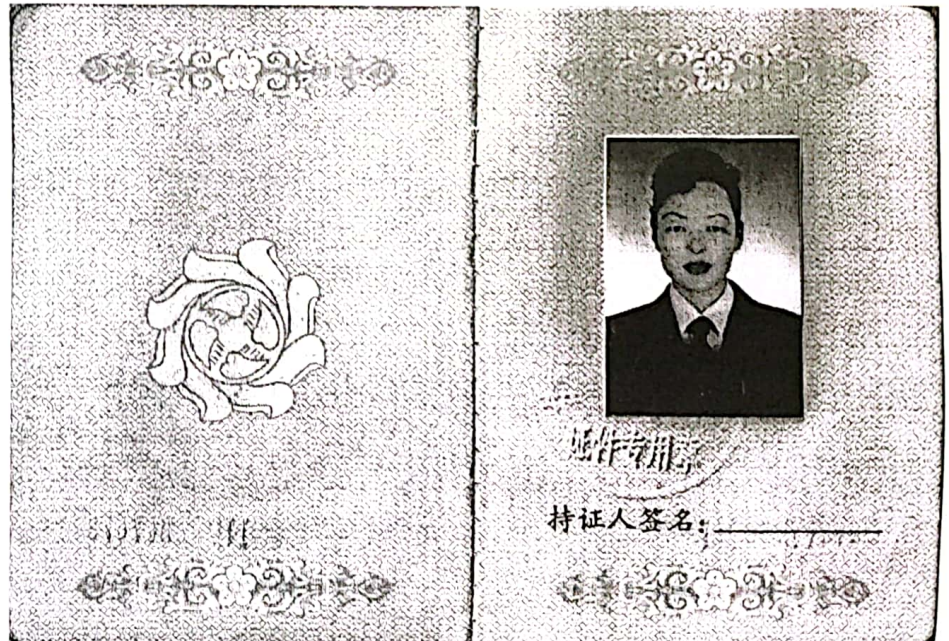 证件专用章
持证人签名：